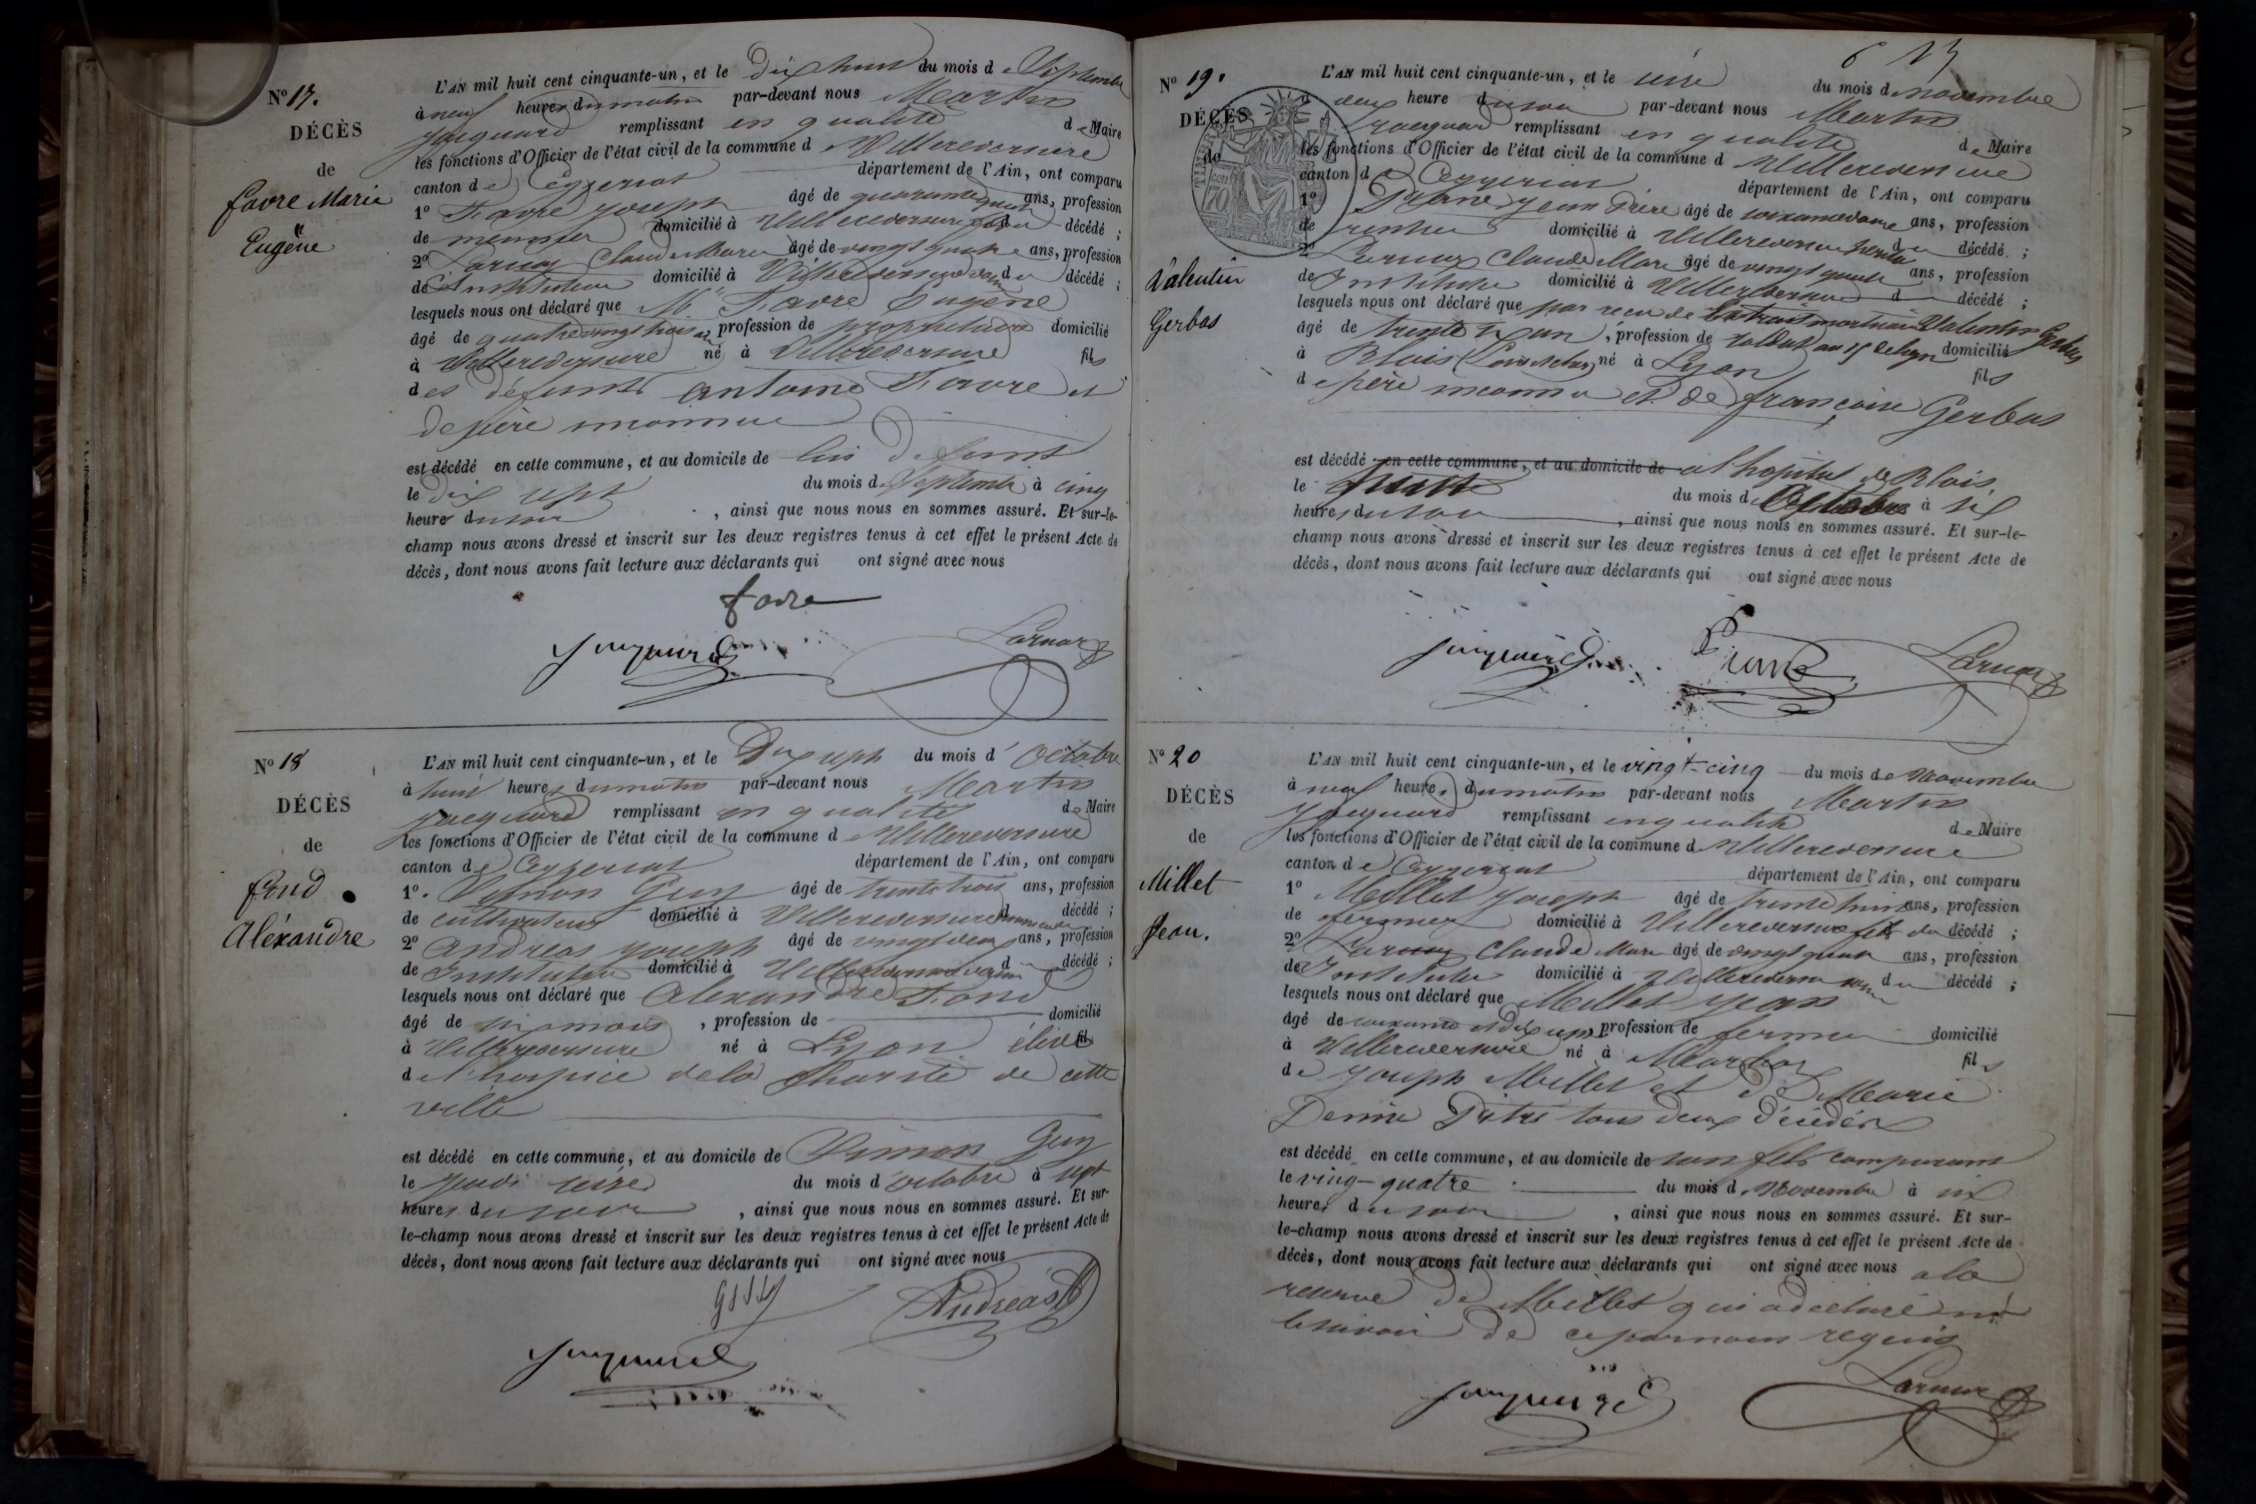 N° 17.
DÉCÈS
de
favre Marie
Eugène
L'AN mil huit cent cinquante-un, et le Dix huit du mois de Septembre
à neuf heures du matin par-devant nous Martin
Jacquard remplissant en qualité de Maire
les fonctions d'Officier de l'état civil de la commune de Villereversure
canton de Ceyzeriat département de l'Ain, ont comparu
1° Favre Joseph âgé de quarante ans, profession
de meunier domicilié à Villereversure décédé ;
2° Larnay Claude Marie âgé de vingt quatre ans, profession
de Instituteur domicilié à Villereversure décédé ;
lesquels nous ont déclaré que Favre Eugène
âgé de quatre vingt trois ans, profession de propriétaire domicilié
à Villereversure né à Villereversure fils
des défunts antoine Favre et
de mère inconnue
est décédé en cette commune, et au domicile de lui défunt
le dix sept du mois de Septembre à cinq
heures du soir, ainsi que nous nous en sommes assuré. Et sur-le-
champ nous avons dressé et inscrit sur les deux registres tenus à cet effet le présent Acte de
décès, dont nous avons fait lecture aux déclarants qui ont signé avec nous
favre
Jacquard Larnay
N° 18
DÉCÈS
de
fond
Aléxandre
L'AN mil huit cent cinquante-un, et le Dix sept du mois d'Octobre
à huit heures du matin par-devant nous Martin
Jacquard remplissant en qualité de Maire
les fonctions d'Officier de l'état civil de la commune de Villereversure
canton de Ceyzeriat département de l'Ain, ont comparu
1°. Guy âgé de trente trois ans, profession
de cultivateur domicilié à Villereversure décédé ;
2° Andréas Joseph âgé de vingt deux ans, profession
de Instituteur domicilié à Villereversure décédé ;
lesquels nous ont déclaré que Alexandre Fond
âgé de six mois, profession de domicilié
à Villereversure né à Lyon élève fil
de l'hospice de la Charité de cette
ville
est décédé en cette commune, et au domicile de Guy
le Jeudi seize du mois d'octobre à sept
heures du soir, ainsi que nous nous en sommes assuré. Et sur-
le-champ nous avons dressé et inscrit sur les deux registres tenus à cet effet le présent Acte de
décès, dont nous avons fait lecture aux déclarants qui ont signé avec nous
Andréas
Jacquard
N° 19.
DÉCÈS
de
Valentin
Gerbas
L'AN mil huit cent cinquante-un, et le seize du mois de novembre
à deux heure du soir par-devant nous Martin
Jacquard remplissant en qualité de Maire
les fonctions d'Officier de l'état civil de la commune de Villereversure
canton de Ceyzeriat département de l'Ain, ont comparu
1° Jean Pierre âgé de soixante ans, profession
de rentier domicilié à Villereversure décédé ;
2° Larnay Claude Marie âgé de vingt quatre ans, profession
de Instituteur domicilié à Villereversure décédé ;
lesquels nous ont déclaré que par de l'extrait mortuaire Valentin Gerbas
âgé de trente un ans, profession de soldat au domicilié
à Blois né à Lyon fils
de père inconnu et de françoise Gerbas
est décédé en cette commune, et au domicile de a l'hopital de Blois
le du mois d'Octobre à six
heures du soir, ainsi que nous nous en sommes assuré. Et sur-le-
champ nous avons dressé et inscrit sur les deux registres tenus à cet effet le présent Acte de
décès, dont nous avons fait lecture aux déclarants qui ont signé avec nous
Jacquard Larnay
N° 20
DÉCÈS
de
Millet
Jean.
L'AN mil huit cent cinquante-un, et le vingt-cinq du mois de Novembre
à neuf heures du matin par-devant nous Martin
Jacquard remplissant en qualité de Maire
les fonctions d'Officier de l'état civil de la commune de Villereversure
canton de Ceyzeriat département de l'Ain, ont comparu
1° Millet Joseph âgé de trente huit ans, profession
de fermier domicilié à Villereversure fils du décédé ;
2° Larnay Claude Marie âgé de vingt quatre ans, profession
de Instituteur domicilié à Villereversure du décédé ;
lesquels nous ont déclaré que Millet Jean
âgé de soixante et dix sept, profession de fermier domicilié
à Villereversure né à fils
de Joseph Millet et de Marie
tous deux décédés
est décédé en cette commune, et au domicile de son fils comparant
le vingt-quatre du mois de Novembre à six
heures du soir, ainsi que nous nous en sommes assuré. Et sur-
le-champ nous avons dressé et inscrit sur les deux registres tenus à cet effet le présent Acte de
décès, dont nous avons fait lecture aux déclarants qui ont signé avec nous a la
reserve de Millet qui a declaré ne
le savoir de ce par nous requis
Jacquard Larnay